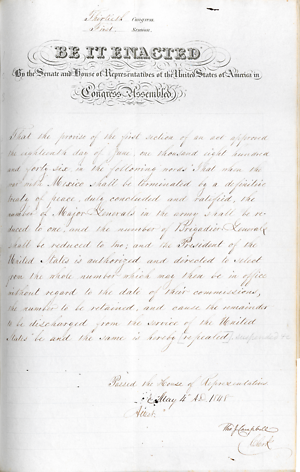 Thirtieth Congress
First Session
BE IT ENACTED
By the Senate and House of Representatives of the United States of America in
Congress Assembled
That the proviso of the first section of an act approved
the eighteenth day of June, one thousand eight hundred
and forty six, in the following words That when the
war with Mexico shall be terminated by a definitive
treaty of peace, duly concluded and ratified, the
number of Major Generals in the army shall be re-
duced to one, and the number of Brigadier Generals
shall be reduced to two; and the President of the
United States is authorized and directed to select
from the whole number which may then be in office
without regard to the date of their commissions,
the number to be retained, and cause the remainder
to be discharged from the service of the United
States be and the same is hereby repealed
Passed the House of Representatives
May 4 AD 1848
Attest
Tho J Campbell
Clerk